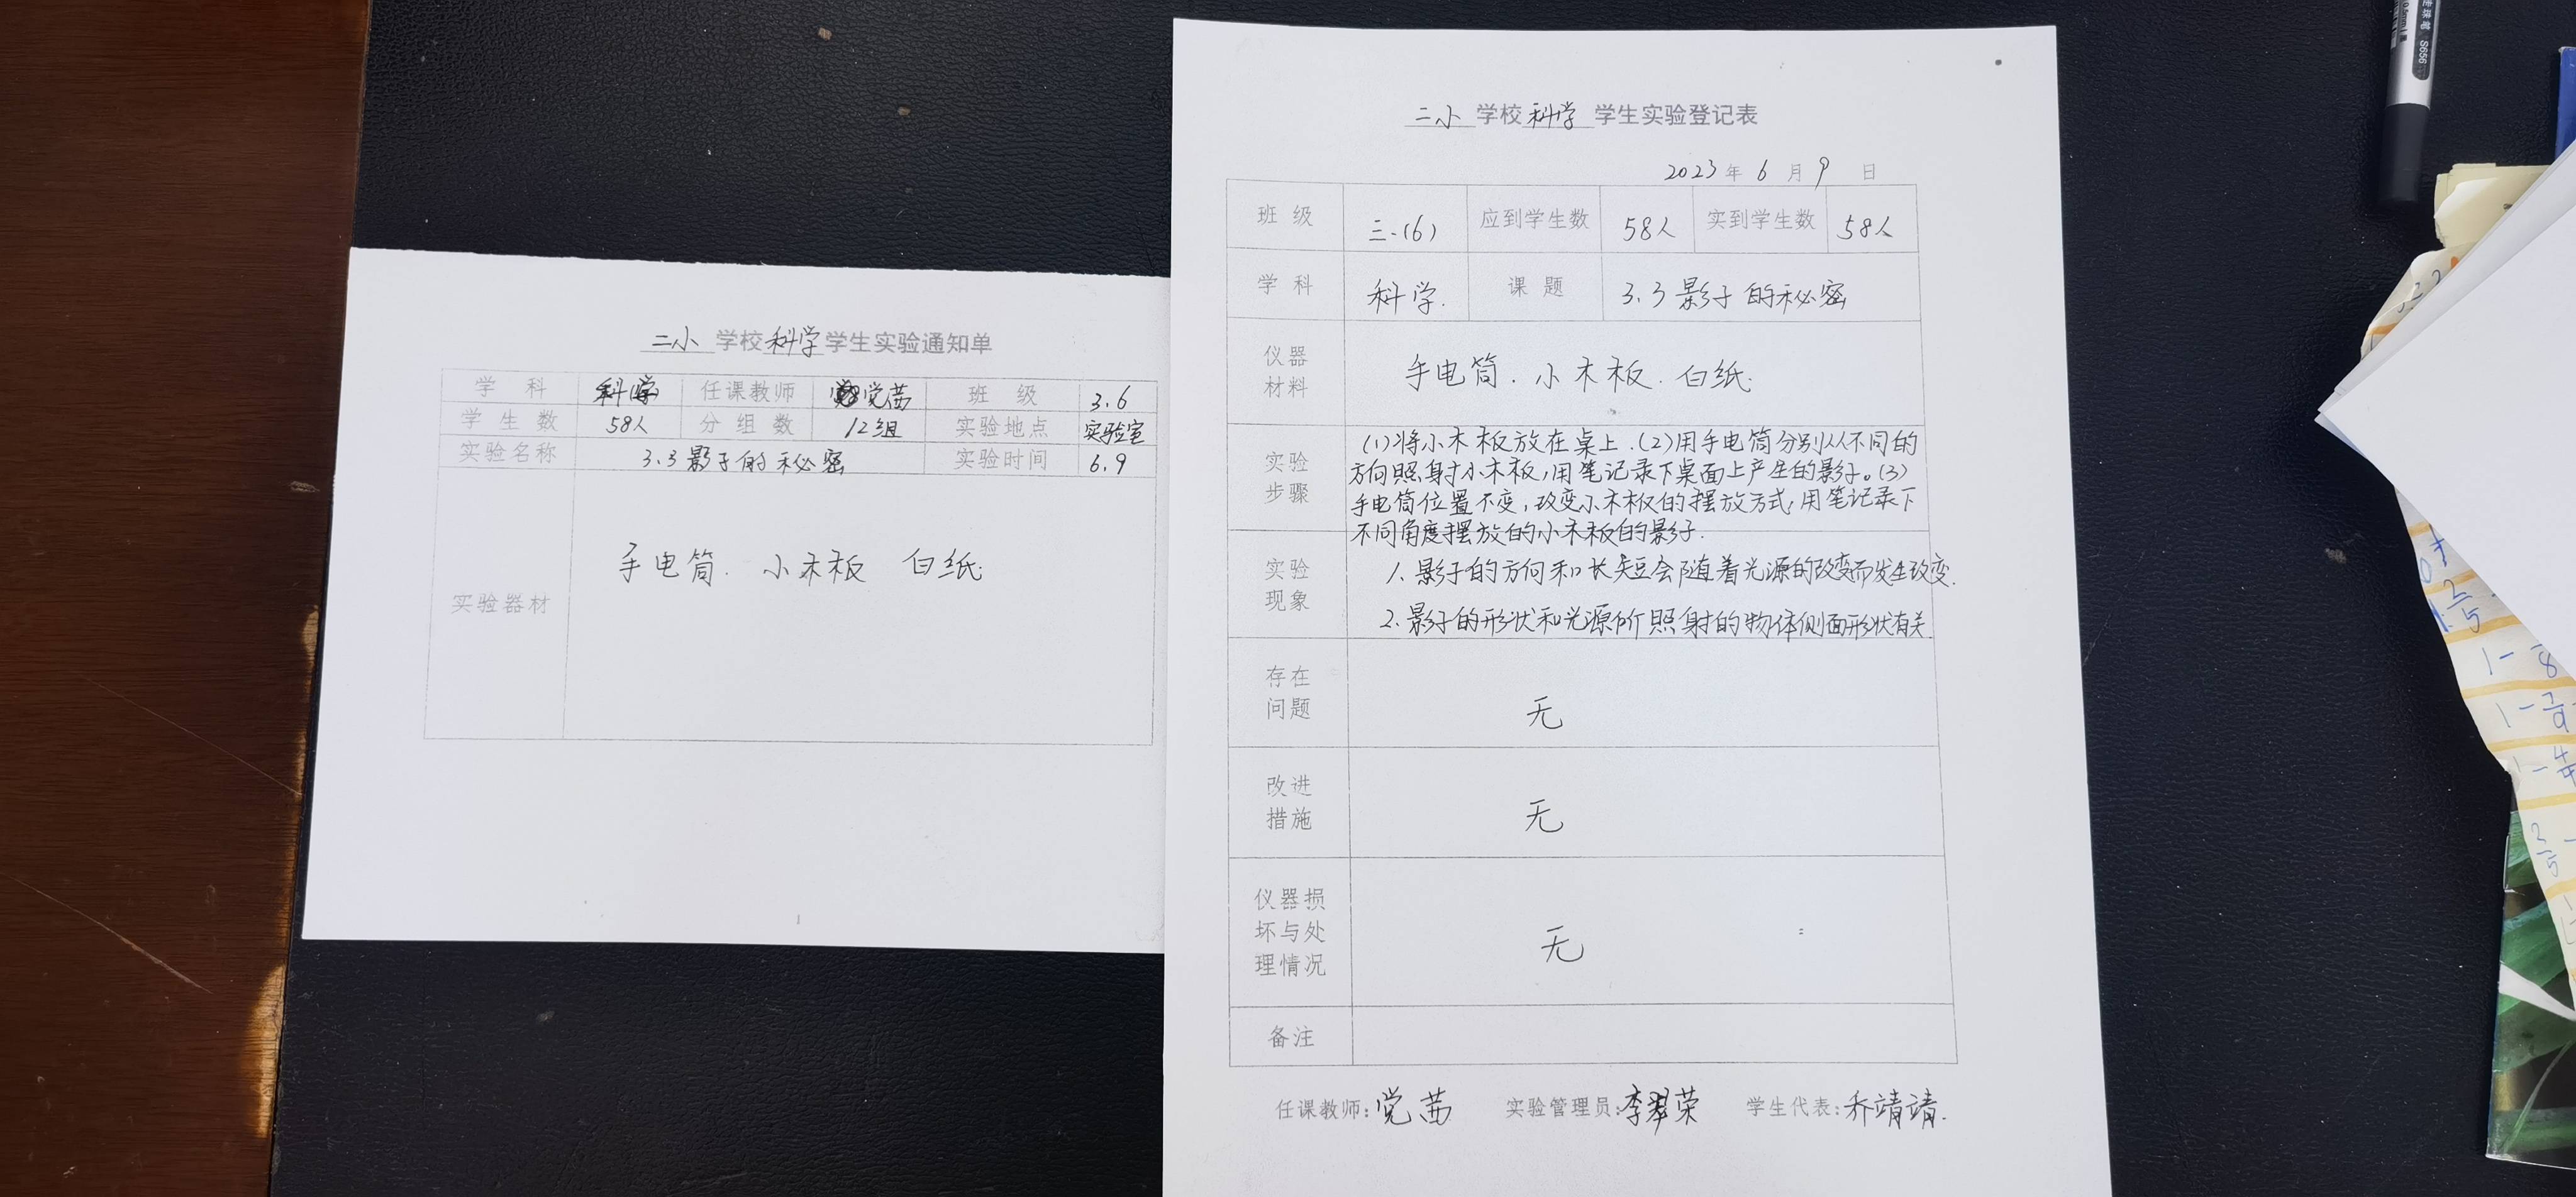 二小 学校 科学 学生实验通知单
学 科 科学 任课教师 党茜 班 级 3.6
学 生 数 58人 分 组 数 12组 实验地点 实验室
实验名称 3.3影子的秘密 实验时间 6.9
实验器材 手电筒. 小木板 白纸.
二小 学校 科学 学生实验登记表
2023 年 6 月 9 日
班 级 三.(6) 应到学生数 58人 实到学生数 58人
学 科 科学. 课 题 3.3影子的秘密
仪器
材料
手电筒. 小木板. 白纸.
实验
步骤
(1)将小木板放在桌上.(2)用手电筒分别从不同的
方向照射小木板,用笔记录下桌面上产生的影子。(3)
手电筒位置不变,改变小木板的摆放方式,用笔记录下
不同角度摆放的小木板的影子.
实验
现象
1. 影子的方向和长短会随着光源的改变而发生改变.
2.影子的形状和光源所照射的物体侧面形状有关.
存在
问题
无
改进
措施
无
仪器损
坏与处
理情况
无
备注
任课教师:党茜 实验管理员:李翠荣 学生代表:乔靖靖.
走珠笔 S656
0.5mm